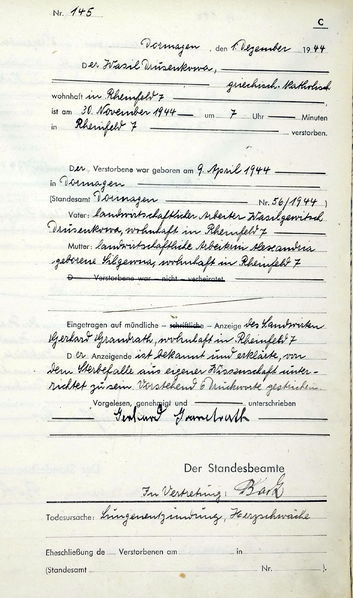 Nr. 145
C
Dormagen, den 1. Dezember 1944
Der Wasil Drusenkowa,
griechisch-katholisch
wohnhaft in Rheinfeld 7
ist am 30. November 1944 um 7 Uhr Minuten
in Rheinfeld 7 verstorben.
Der Verstorbene war geboren am 9. April 1944
in Dormagen
(Standesamt Dormagen Nr. 56/1944)
Vater: landwirtschaftlicher Arbeiter Wasilgewitsch
Drusenkowa, wohnhaft in Rheinfeld 7
Mutter: landwirtschaftliche Arbeiterin Alexandria
geborene Silgewna, wohnhaft in Rheinfeld 7
D Verstorbene war – nicht – verheiratet
Eingetragen auf mündliche – schriftliche – Anzeige des Landwirten
Gerhard Grandrath, wohnhaft in Rheinfeld 7
Der Anzeigende ist bekannt und erklärte, von
dem Sterbefalle aus eigener Wissenschaft unter-
richtet zu sein. Vorstehend Druckworte gestrichen
Vorgelesen, genehmigt und unterschrieben
Gerhard Grandrath
Der Standesbeamte
In Vertretung:
Todesursache: Lungenentzündung, Herzschwäche
Eheschließung de Verstorbenen am in
(Standesamt Nr. ).